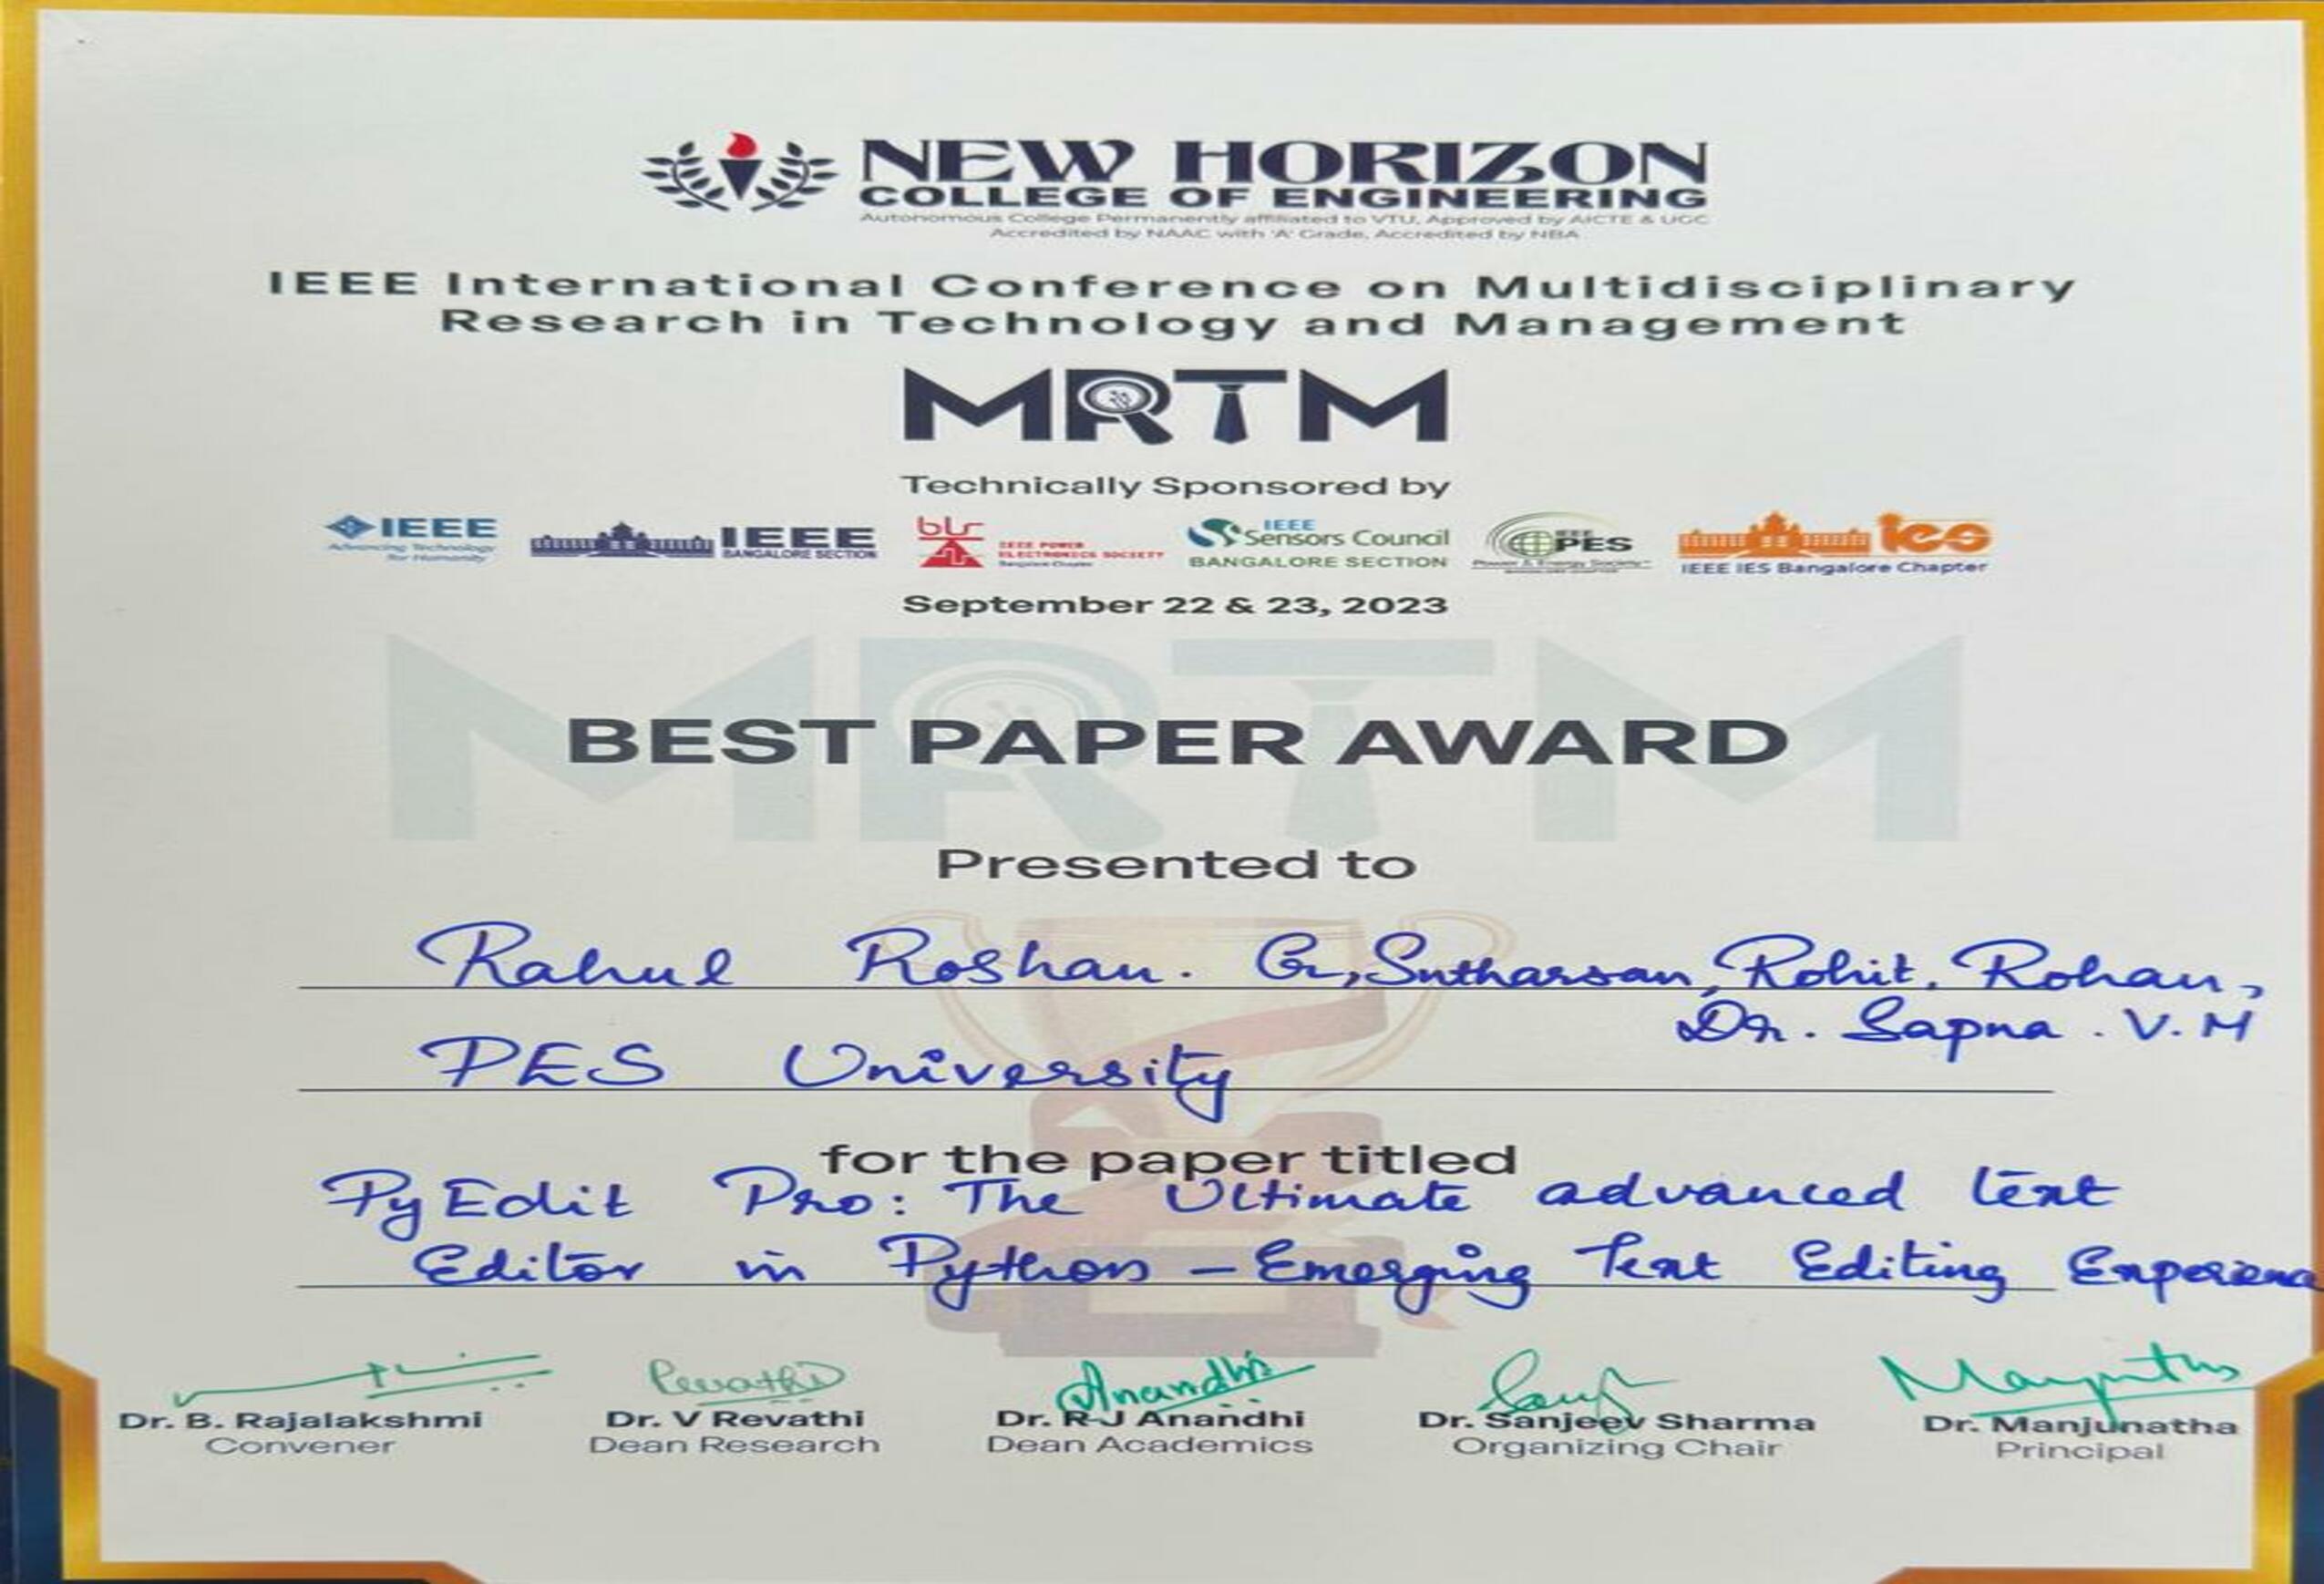 NEW HORIZON
COLLEGE OF ENGINEERING
Autonomous College Permanently affiliated to VTU, Approved by AICTE & UGC
Accredited by NAAC with 'A' Grade, Accredited by NBA
IEEE International Conference on Multidisciplinary
Research in Technology and Management
MRTM
Technically Sponsored by
IEEE
Advancing Technology
for Humanity
IEEE
BANGALORE SECTION
blr
IEEE POWER
ELECTRONICS SOCIETY
Bangalore Chapter
IEEE
Sensors Council
BANGALORE SECTION
IEEE
PES
Power & Energy Society
ies
IEEE IES Bangalore Chapter
September 22 & 23, 2023
MRTM
BEST PAPER AWARD
Presented to
Rahul Roshan. G, Sutharsan, Rohit, Rohan,
Dr. Sapna. V. M
PES University
for the paper titled
PyEdit Pro: The Ultimate advanced text
Editor in Python - Emerging Text Editing
Revathi
Anandhi
Manjunatha
Dr. B. Rajalakshmi
Convener
Dr. V Revathi
Dean Research
Dr. R J Anandhi
Dean Academics
Dr. Sanjeev Sharma
Organizing Chair
Dr. Manjunatha
Principal